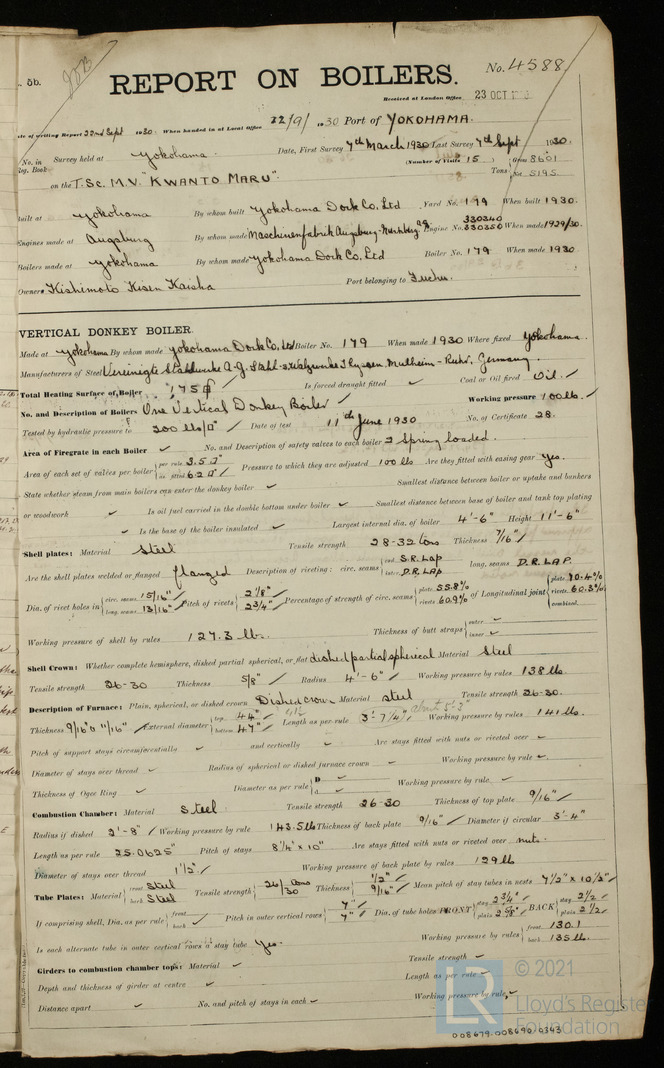 5b.
REPORT ON BOILERS.
No. 4588
Received at London Office 23 OCT
Date of writing Report 22nd Sept 1930. When handed in at Local Office 22/9/1930 Port of YOKOHAMA.
No. in Survey held at Yokohama. Date, First Survey 7th March 1930 Last Survey 7th Sept 1930.
Reg. Book (Number of Visits 15) Gross 8601
on the T.Sc. M.V. "KWANTO MARU". Tons Net 5195
Built at Yokohama By whom built Yokohama Dock Co. Ltd Yard No. 199 When built 1930.
Engines made at Augsburg By whom made Maschinenfabrik Augsburg-Nurnberg A.G. Engine No. 330340 330350 When made 1929/30.
Boilers made at Yokohama By whom made Yokohama Dock Co. Ltd Boiler No. 179 When made 1930
Owners Kishimoto Kisen Kaisha Port belonging to
VERTICAL DONKEY BOILER.
Made at Yokohama By whom made Yokohama Dock Co. Ltd Boiler No. 179 When made 1930 Where fixed Yokohama.
Manufacturers of Steel Vereinigte Stahlwerke A-G. Stahl-u. Walzwerke Thyssen. Mulheim-Ruhr. Germany.
Total Heating Surface of Boiler 175 Is forced draught fitted - Coal or Oil fired Oil.
No. and Description of Boilers One Vertical Donkey Boiler Working pressure 100 lbs.
Tested by hydraulic pressure to 200 lbs/□" Date of test 11th June 1930 No. of Certificate 28.
Area of Firegrate in each Boiler No. and Description of safety valves to each boiler 2 Spring loaded.
Area of each set of valves per boiler per rule 3.5□" as fitted 6.2□" Pressure to which they are adjusted 100 lbs Are they fitted with easing gear Yes.
State whether steam from main boilers can enter the donkey boiler Smallest distance between boiler or uptake and bunkers
or woodwork Is oil fuel carried in the double bottom under boiler Smallest distance between base of boiler and tank top plating
Is the base of the boiler insulated Largest internal dia. of boiler 4'-6" Height 11'-6"
Shell plates: Material Steel Tensile strength 28-32 tons Thickness 7/16"
Are the shell plates welded or flanged flanged Description of riveting: circ. seams end S.R. Lap inter. D.R. Lap long. seams D.R. LAP.
Dia. of rivet holes in circ. seams 15/16" long. seams 13/16" Pitch of rivets 2 1/8" 2 3/4" Percentage of strength of circ. seams plate 55.8% rivets 60.9% of Longitudinal joint plate 70.4% rivets 60.3% combined
Working pressure of shell by rules 127.3 lb. Thickness of butt straps outer inner
Shell Crown: Whether complete hemisphere, dished partial spherical, or flat dished partial spherical Material Steel
Tensile strength 26-30 Thickness 5/8" Radius 4'-6" Working pressure by rules 138 lb.
Description of Furnace: Plain, spherical, or dished crown Dished crown Material Steel Tensile strength 26-30.
Thickness 9/16" & 11/16" External diameter top 44" bottom 47" Length as per rule 3'-7 1/4" Working pressure by rules 141 lb.
Pitch of support stays circumferentially and vertically Are stays fitted with nuts or riveted over
Diameter of stays over thread Radius of spherical or dished furnace crown Working pressure by rule
Thickness of Ogee Ring Diameter as per rule D d Working pressure by rule
Combustion Chamber: Material Steel Tensile strength 26-30 Thickness of top plate 9/16"
Radius if dished 2'-8" Working pressure by rule 143.5 lb Thickness of back plate 9/16" Diameter if circular 3'-4"
Length as per rule 25.0625" Pitch of stays 8 1/4" x 10" Are stays fitted with nuts or riveted over nuts.
Diameter of stays over thread 1 1/2" Working pressure of back plate by rules 129 lb
Tube Plates: Material front Steel back Steel Tensile strength 26/30 tons Thickness 1/2" 9/16" Mean pitch of stay tubes in nests 7 1/2" x 10 1/2"
If comprising shell, Dia. as per rule front back Pitch in outer vertical rows 7" 7" Dia. of tube holes FRONT stay 2 3/4" plain 2 5/8" BACK stay 2 1/2 plain 2 1/2
Is each alternate tube in outer vertical rows a stay tube Yes. Working pressure by rules front 130.1 back 135 lb.
Girders to combustion chamber tops: Material Tensile strength
Depth and thickness of girder at centre Length as per rule
Distance apart No. and pitch of stays in each Working pressure by rule
© 2021
Lloyd's Register
Foundation
008679-008690-0343